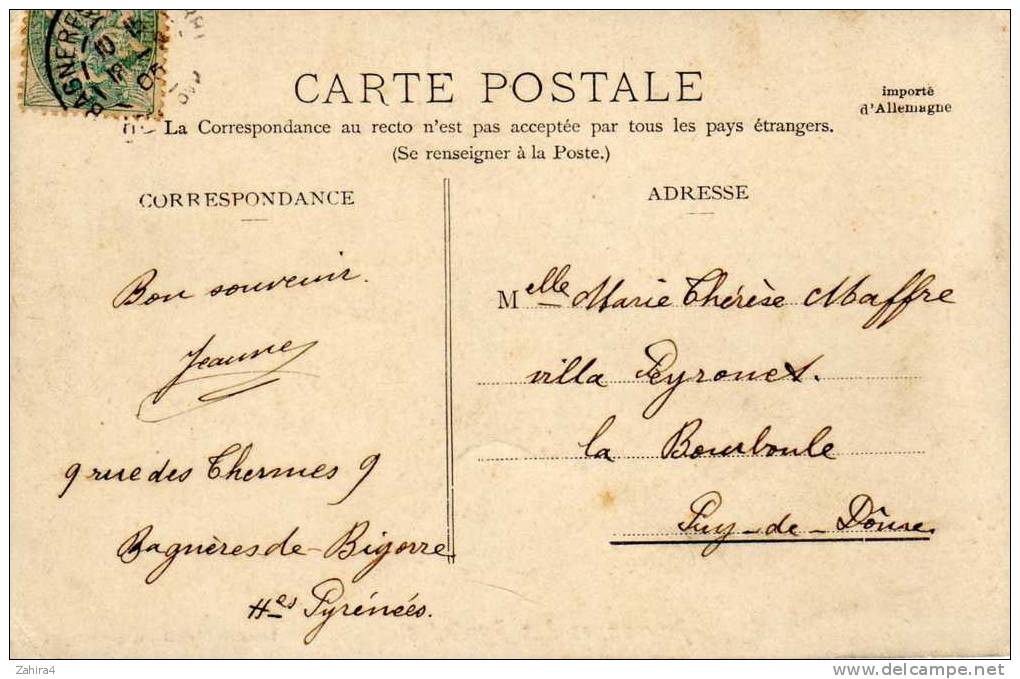 BAGNERES
CARTE POSTALE
importé
d'Allemagne
La Correspondance au recto n'est pas acceptée par tous les pays étrangers.
(Se renseigner à la Poste.)
CORRESPONDANCE
Bon souvenir.
Jeanne
9 rue des Thermes 9
Bagnères de - Bigorre
Htes Pyrénées.
ADRESSE
Melle Marie Thérèse Maffre
villa Peyronet.
la Bourboule
Puy-de-Dôme
Zahira4
www.delcampe.net